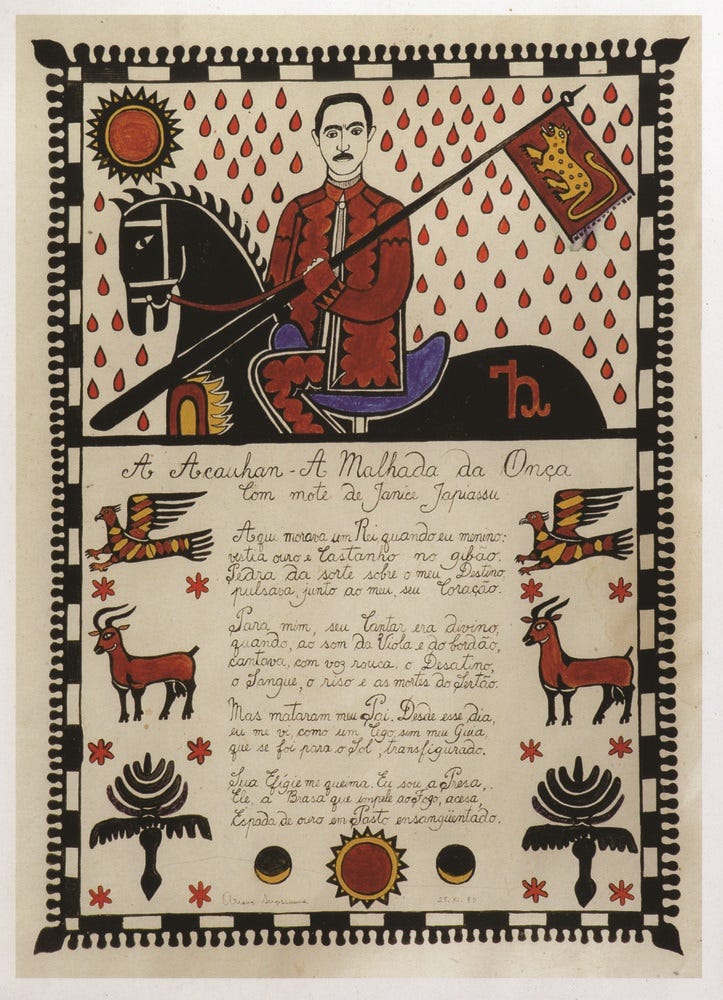 A Acauhan - A Malhada da Onça
Com mote de Janice Japiassu
Aqui morava um Rei quando eu menino:
vestia ouro e Castanho no gibão.
Pedra da sorte sobre o meu Destino,
pulsava, junto ao meu, seu Coração.
Para mim, seu Cantar era divino,
quando, ao som da Viola e do bordão,
cantava, com voz rouca, o Desatino,
o Sangue, o riso e as mortes do Sertão.
Mas mataram meu Pai. Desde esse dia,
eu me vi, como um Cego, sem meu Guia,
que se foi para o Sol, transfigurado.
Sua Efígie me queima. Eu sou a Presa,
Ele, a Brasa que impele ao Fogo, acesa,
Espada de ouro em Pasto ensangüentado.
Ariano Suassuna 25.XI.80